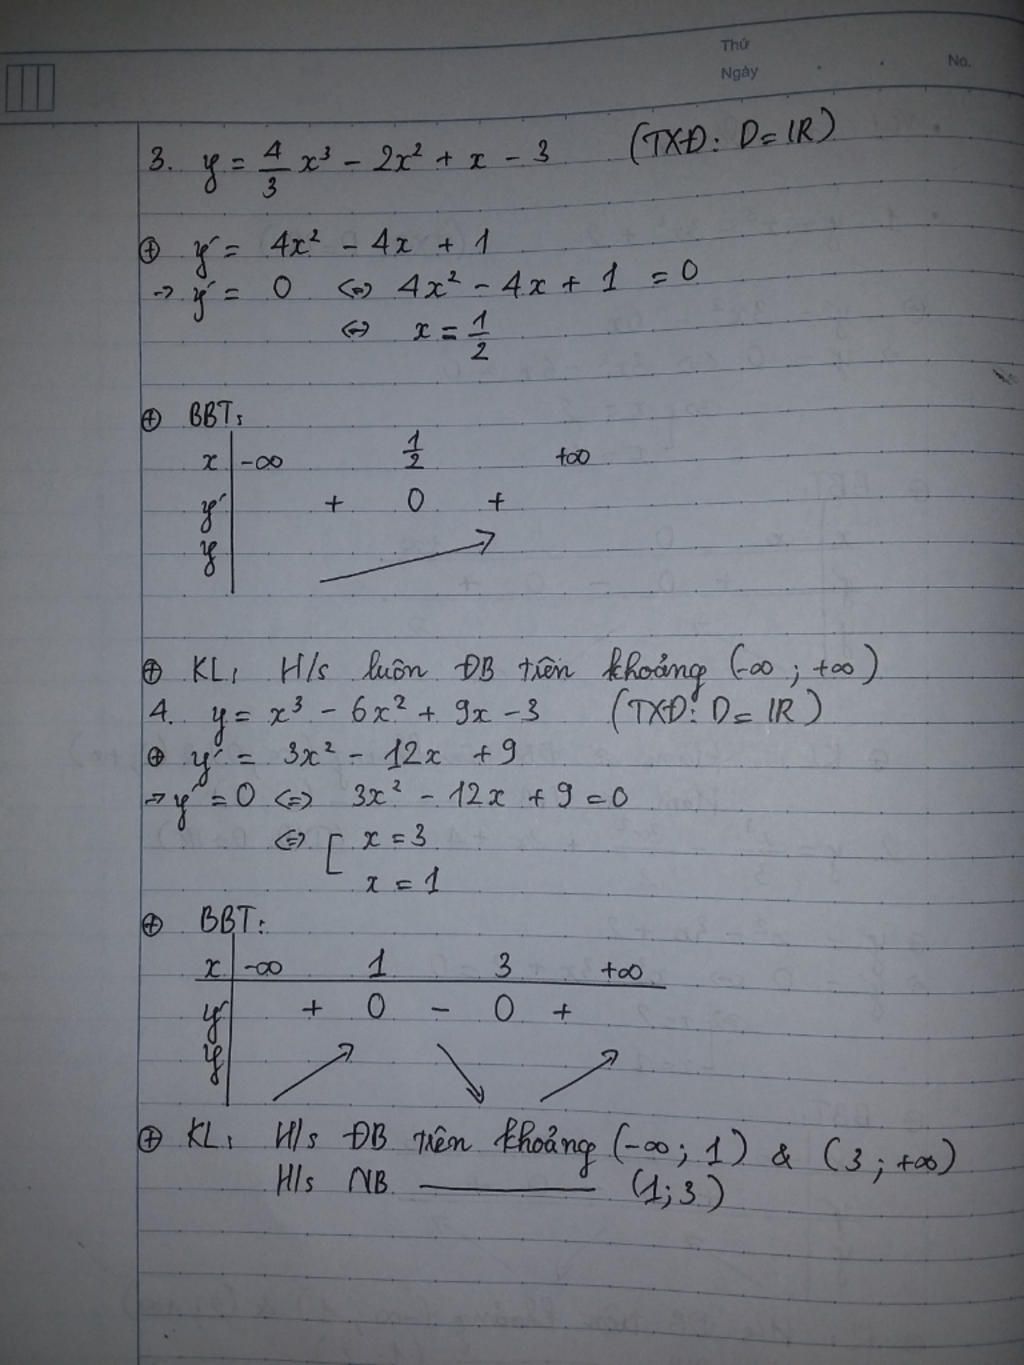 Thứ
Ngày
No.
3. y = 4/3 x³ - 2x² + x - 3 (TXĐ: D = IR)
⊕ y' = 4x² - 4x + 1
→ y' = 0 <=> 4x² - 4x + 1 = 0
<=> x = 1/2
⊕ BBT:
x | -∞ 1/2 +∞
y' | + 0 +
y |
⊕ KL: H/s luôn ĐB trên khoảng (-∞ ; +∞)
4. y = x³ - 6x² + 9x - 3 (TXĐ: D = IR)
⊕ y' = 3x² - 12x + 9
→ y' = 0 <=> 3x² - 12x + 9 = 0
<=> [ x = 3
x = 1
⊕ BBT:
x | -∞ 1 3 +∞
y' | + 0 - 0 +
y |
⊕ KL: H/s ĐB trên khoảng (-∞ ; 1) & (3 ; +∞)
H/s NB ——— (1;3)